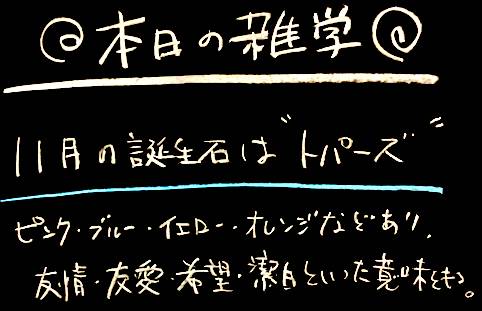 @本日の雑学@
11月の誕生石は"トパーズ"
ピンク・ブルー・イエロー・オレンジなどあり、
友情・友愛・希望・潔白といった意味をもつ。